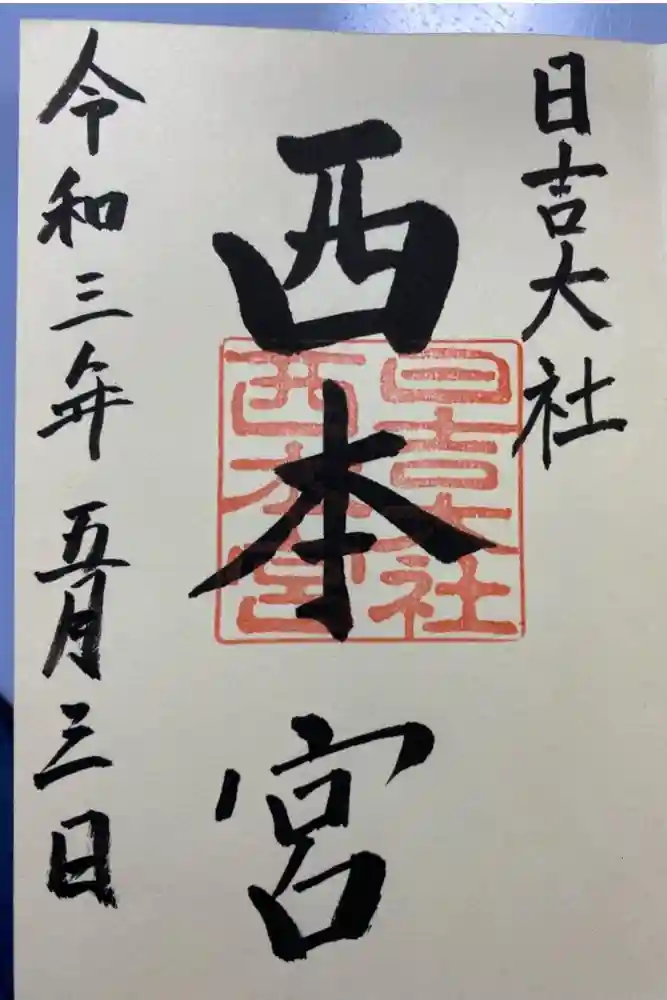 日吉大社
西本宮
日吉大社
西本宮
令和三年五月三日